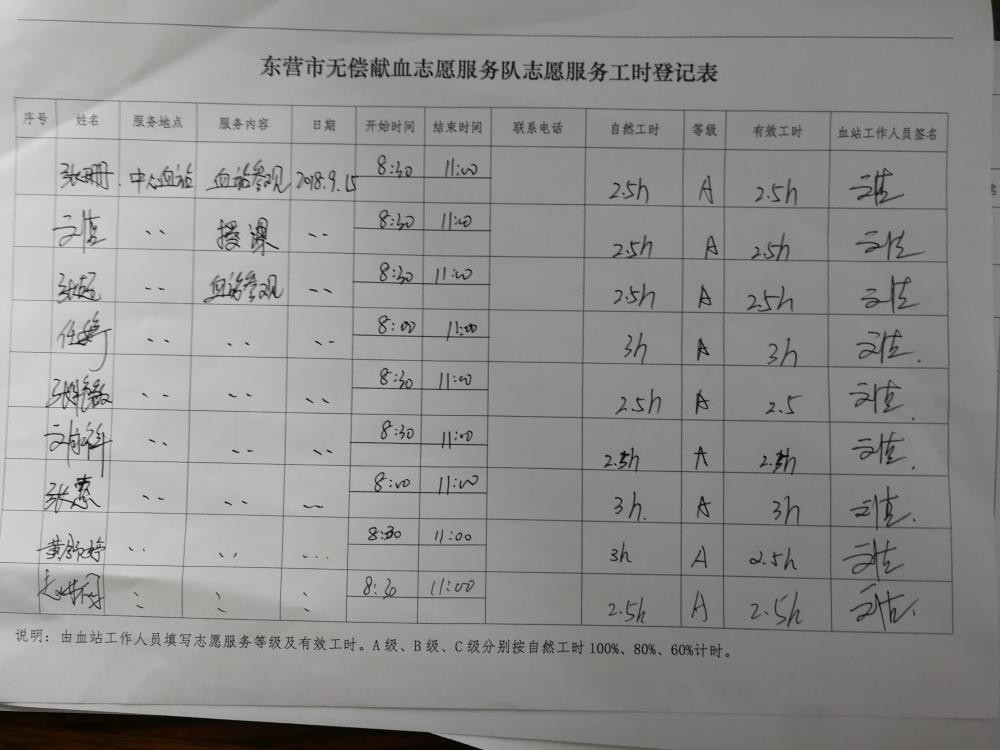 东营市无偿献血志愿服务队志愿服务工时登记表
序号 姓名 服务地点 服务内容 日期 开始时间 结束时间 联系电话 自然工时 等级 有效工时 血站工作人员签名
张珊 中心血站 血站参观 2018.9.15 8:30 11:00 2.5h A 2.5h
授课 8:30 11:00 2.5h A 2.5h
血站参观 8:30 11:00 2.5h A 2.5h
8:00 11:00 3h A 3h
8:30 11:00 2.5h A 2.5
8:30 11:00 2.5h A 2.5h
8:00 11:00 3h. A 3h
8:30 11:00 3h A 2.5h
8:30 11:00 2.5h A 2.5h
说明：由血站工作人员填写志愿服务等级及有效工时。A级、B级、C级分别按自然工时100%、80%、60%计时。